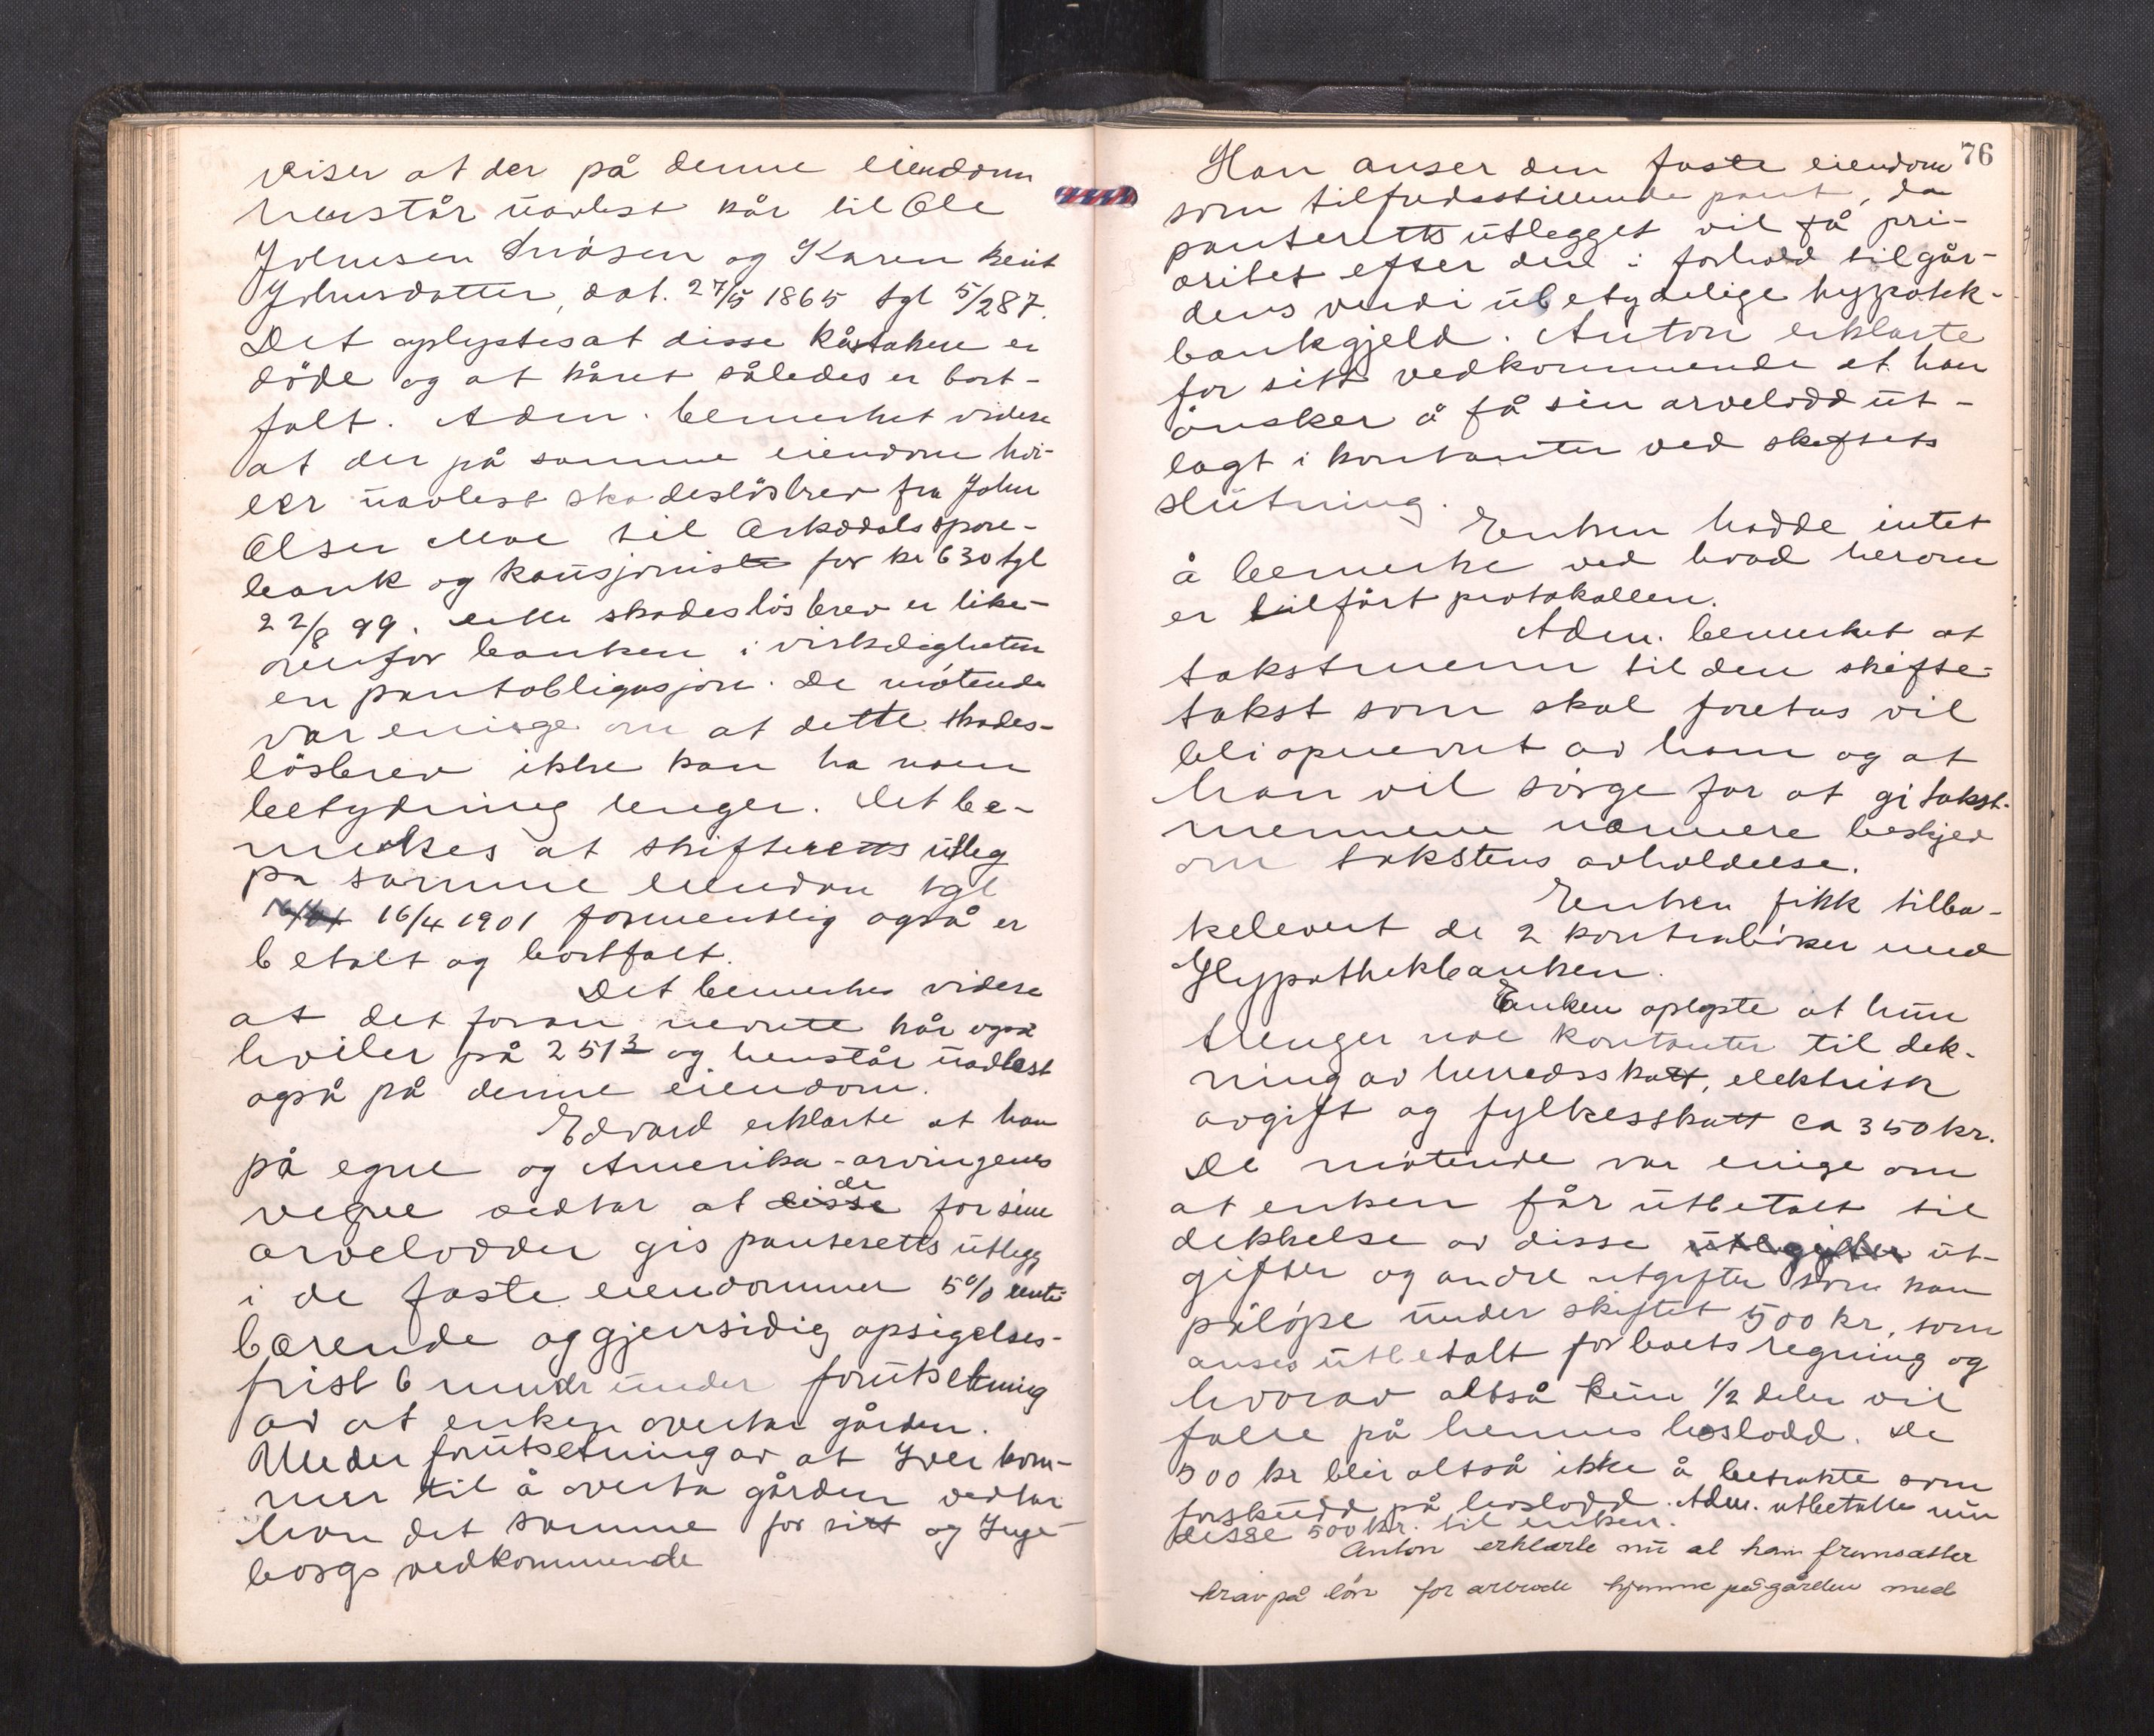 viser at der på denne eiendom
henstår uavlest kår til Ole
Johnsen Snåsen og Karen Beret
Johnsdatter, dat. 27/5 1865 tgl 5/287.
Det oplystes at disse kårtakere er
döde og at kåret således er bort-
falt. Adm. bemerket videre
at der på samme eiendom hvi-
ler uavlest skadeslösbrev fra John
Olsen Moe til Orkedals spare-
bank og kausjonister for kr 630 tgl
22/8 99. dette skadeslösbrev er like-
ovenfor banken i virkeligheten
en pantobligasjon. De mötende
var enige om at dette skades-
lösbrev ikke kan ha noen
betydning lenger. Det be-
merkes at skifteretts utleg
på samme eiendom tgl
16/4 1901 formentlig også er
betalt og bortfalt.
Det bemerkes videre
at det foran nevnte kår også
hviler på 251 3 og henstår uavlest
også på denne eiendom.
Edvard erklærte at han
på egne og Amerika-arvingenes
vegne vedtar at disse de for sine
arvelodder gis panteretts utlegg
i de faste eiendommer 5% rente
bærende og gjensidig opsigelses-
frist 6 mndr under forutsetning
av at enken overtar gården.
Under forutsetning av at Iver kom-
mer til å overta gården vedtar
han det samme for sitt og Inge-
borgs vedkommende
76
Han anser den faste eiendom
som tilfredsstillende pant, da
panterettsutlegget vil få pri-
oritet efter den i forhold til går-
dens verdi ubetydelige hypotek-
bankgjeld. Anton erklærte
for sitt vedkommende at han
önsker å få sin arvelodd ut-
lagt i kontanter ved skiftets
slutning.
Enken hadde intet
å bemerke ved hvad herom
er tilfört protokollen.
Adm. bemerket at
takstmenn til den skifte-
takst som skal foretas vil
bli opnevnt av ham og at
han vil sörge for at gi takst-
mennene nærmere beskjed
om takstens avholdelse.
Enken fikk tilba-
kelevert de 2 kontraböker med
Hypothekbanken.
Enken oplyste at hun
trenger noe kontanter til dek-
ning av herredsskatt, elektrisk
avgift og fylkesskatt ca 350 kr.
De mötende var enige om
at enken får utbetalt til
dekkelse av disse ut-
gifter og andre utgifter som kan
pålöpe under skiftet 500 kr, som
anses utbetalt for boets regning og
hvorav altså kun 1/2 delen vil
falle på hennes boslodd. De
500 kr blir altså ikke å betrakte som
forskudd på boslodd. Adm. utbetalte nu
disse 500 kr. til enken.
Anton erklærte nu at han fremsætter
krav på lön for arbeide hjemme på gården med